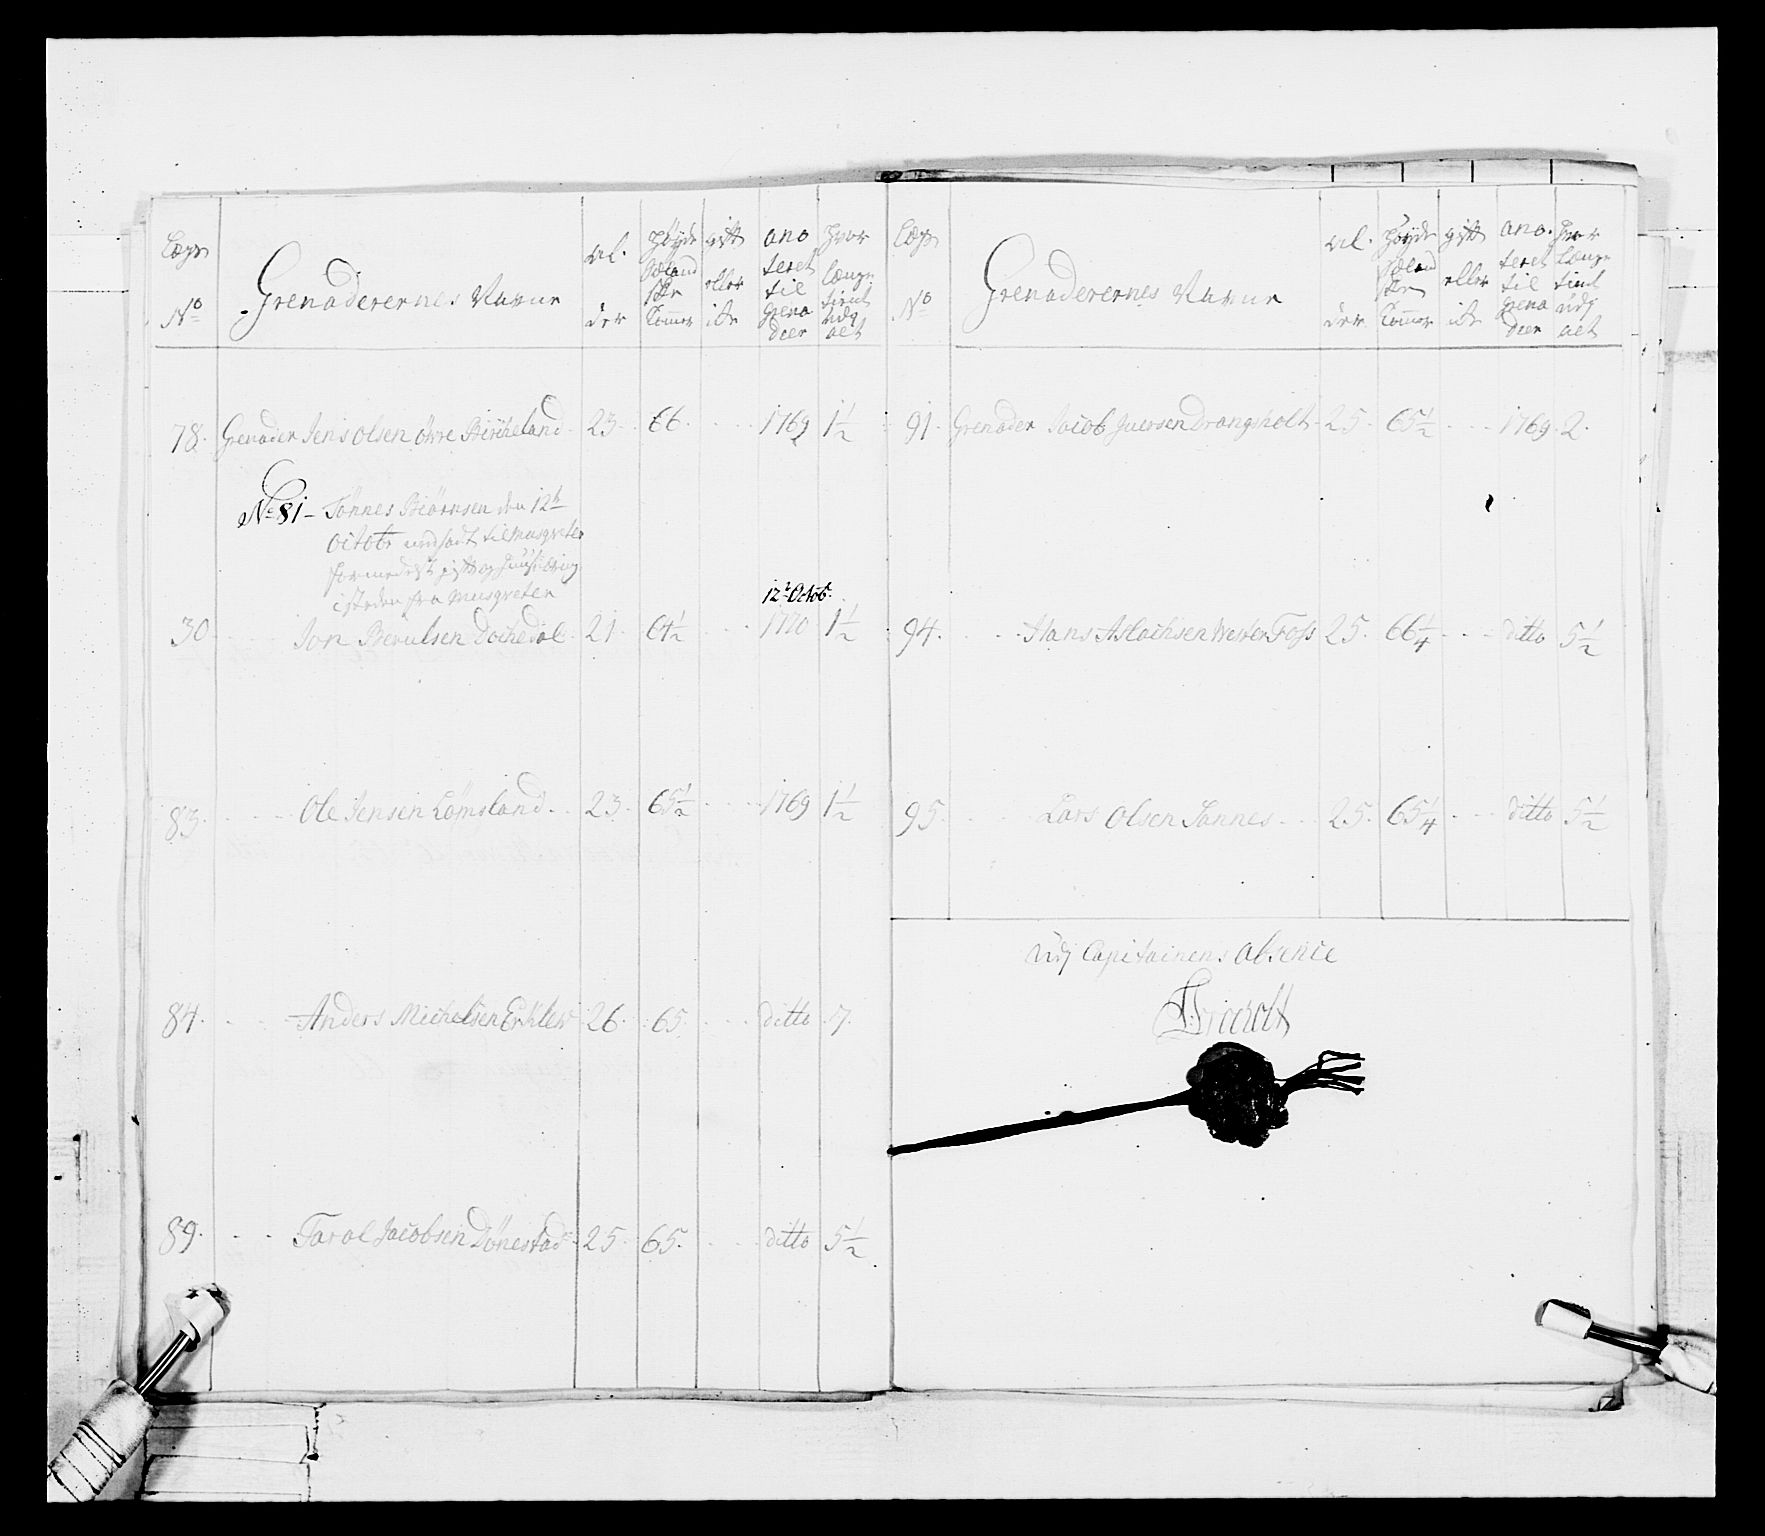 Lægs No Grenaderernes Navne al. der Höyde Siæland ske Tommer gift eller ikke ano teret til grena deer hvor længe tient udg aet
78. Grenader Jens Olsen övre Birkeland 23. 66. 1769 1½
No 81 - Tönnes Biörnsen den 12te
octobr nedsadt til Musqveter
formedelst gift og
isteden fra Musqveter
12te Octobr.
30 Jon Berulsen Dochedal 21. 64½ 1770 1½
83. Ole Jensen Lömsland 23. 65½ 1769 1½
84. Anders Michelsen Erklev 26. 65. ditto 7.
89. Tarol Jacobsen Dönestad 25. 65. ditto 5½
Lægs No Grenaderernes Navne al. der Höyde Siæland ske Tommer gift eller ikke ano. teret til grena deer hvor længe tient udg aet
91. Grenader Jacob Juersen Drangsholt 25. 65½ 1769. 2.
94. Hans Aslachsen Wester Foss 25. 66¼ ditto 5½
95. Lars Olsen Sannes 25. 65¼ ditto 5½
Udj Capitainens absence